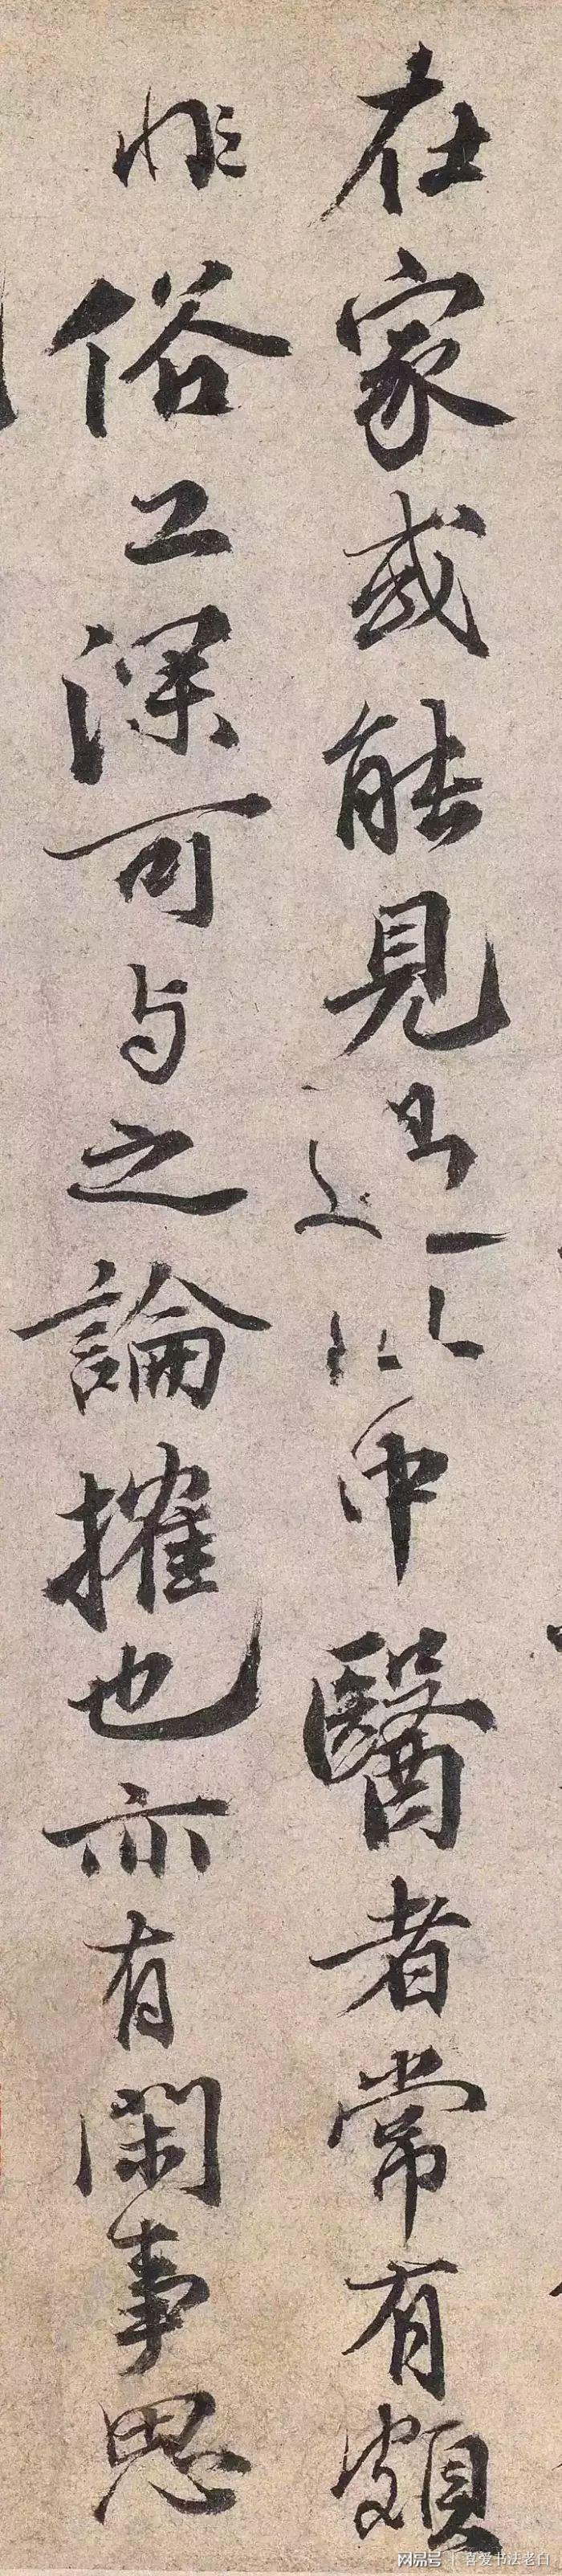 在家或能見過以中醫者常有頗
非俗工深可与之論攉也亦有閑事思
网易号 | 喜爱书法老白